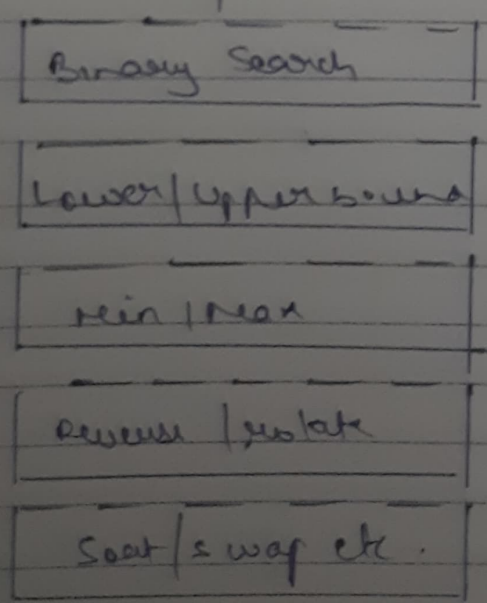 Binary Search
Lower/Upper bound
Min/Max
Reverse/rotate
Sort/swap etc.